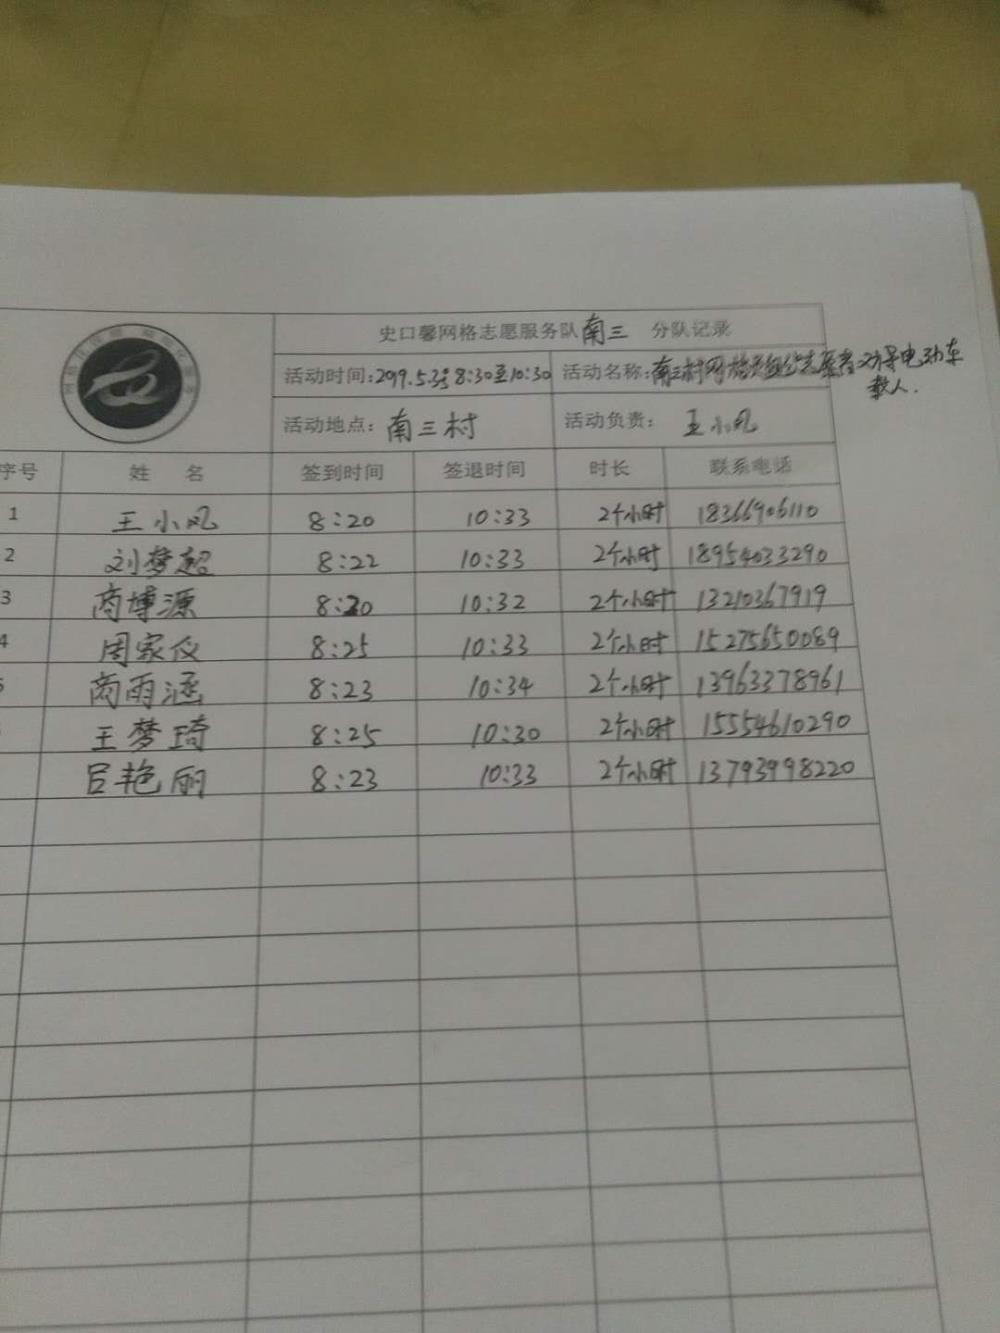 史口馨网格志愿服务队南三 分队记录
活动时间:2019.5.3 8:30至10:30 活动名称:南三村网格 志愿者劝导电动车
载人.
活动地点:南三村 活动负责:王小风
序号 姓 名 签到时间 签退时间 时长 联系电话
1 王小风 8:20 10:33 2个小时 18366906110
2 刘梦超 8:22 10:33 2个小时 18954033290
3 商博源 8:20 10:32 2个小时 13210367919
4 周家仪 8:25 10:33 2个小时 15275650089
5 商雨涵 8:23 10:34 2个小时 13963378961
王梦琦 8:25 10:30 2个小时 15554610290
吕艳丽 8:23 10:33 2个小时 13793998220